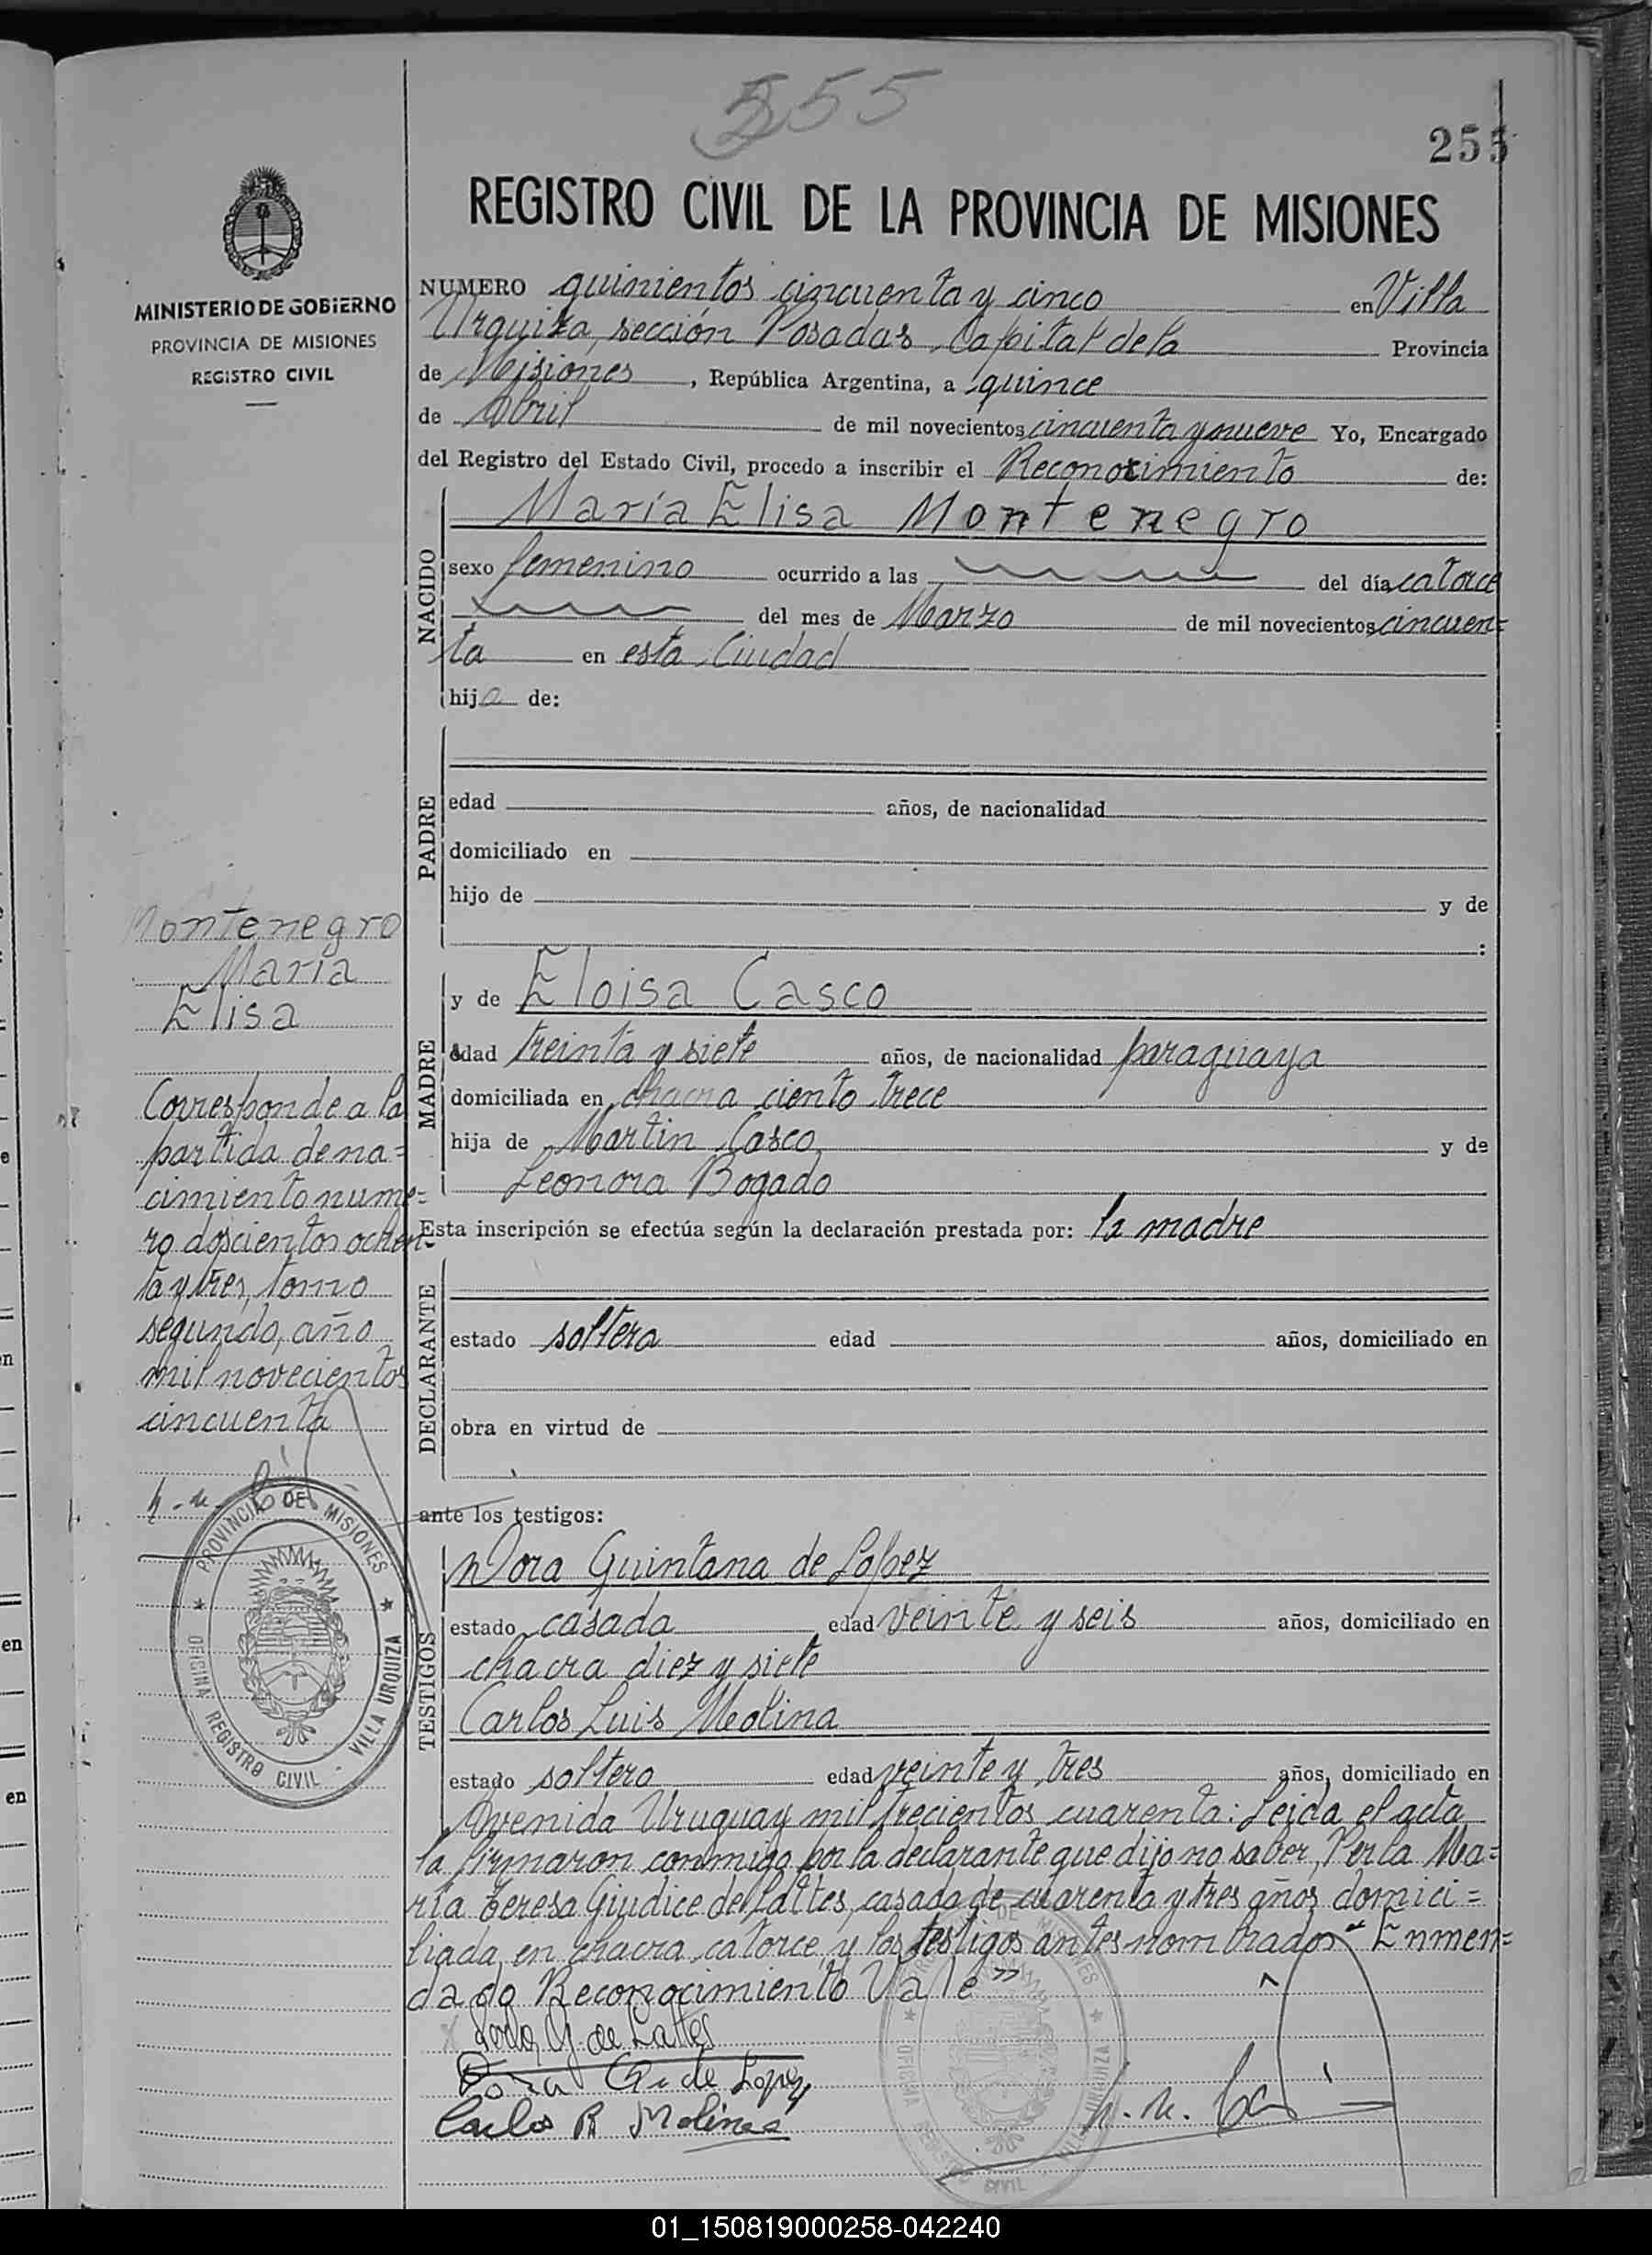 555
255
REGISTRO CIVIL DE LA PROVINCIA DE MISIONES
MINISTERIO DE GOBIERNO
PROVINCIA DE MISIONES
REGISTRO CIVIL
NUMERO quinientos cincuenta y cinco en Villa
Urquiza, sección Posadas, Capital de la Provincia
de Misiones, República Argentina, a quince
de Abril de mil novecientos cincuenta y nueve Yo, Encargado
del Registro del Estado Civil, procedo a inscribir el Reconocimiento de:
NACIDO
María Elisa Montenegro
sexo femenino ocurrido a las del día catorce
del mes de Marzo de mil novecientos cincuen=
ta en esta Ciudad
hija de:
PADRE
edad años, de nacionalidad
domiciliado en
hijo de y de
:
MADRE
y de Eloisa Casco
edad treinta y siete años, de nacionalidad paraguaya
domiciliada en chacra ciento trece
hija de Martin Casco y de
Leonora Bogado
Esta inscripción se efectúa según la declaración prestada por: la madre
DECLARANTE
estado soltera edad años, domiciliado en
obra en virtud de
ante los testigos:
TESTIGOS
Dora Quintana de Lopez
estado casada edad veinte y seis años, domiciliado en
chacra diez y siete
Carlos Luis Molina
estado soltero edad veinte y tres años, domiciliado en
Avenida Uruguay mil trecientos cuarenta: Leida el acta
la firmaron conmigo por la declarante que dijo no saber, Perla Ma=
ría Teresa Giudice de Lattes, casada de cuarenta y tres años domici=
liada en chacra catorce y los testigos antes nombrados- Enmen=
dado Reconocimiento Vale"
Perla G. de Lattes
Dora Q. de Lopez
Carlos Molina
Montenegro
María
Elisa
Corresponde a la
partida de na=
cimiento nume=
ro doscientos ochen-
ta y tres, tomo
segundo, año
mil novecientos
cincuenta
PROVINCIA DE MISIONES
OFICINA REGISTRO CIVIL - VILLA URQUIZA
DE MISIONES
OFICINA REGISTRO CIVIL VILLA URQUIZA
01_150819000258-042240